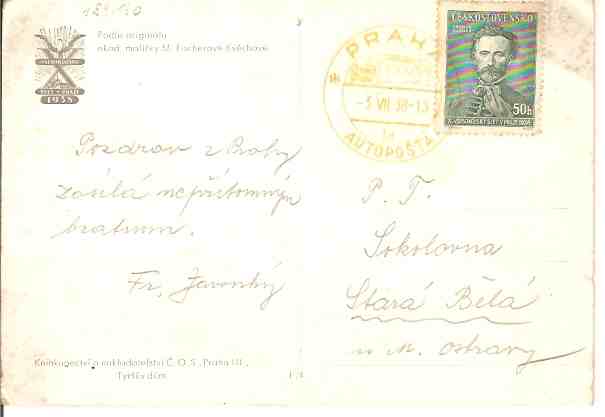 Podle originálu
akad. malířky M. Fischerové-Kvěchové
1938
PRAHA
-3. VII 38-13
1a
AUTOPOŠTA
ČESKOSLOVENSKO
50h
Pozdrav z Prahy
zasílá nepřítomným
bratrům.
Fr. Javorský
P. T.
Sokolovna
Stará Bělá
u M. Ostravy
Knihkupectví a nakladatelství Č. O. S., Praha III.,
Tyršův dům.